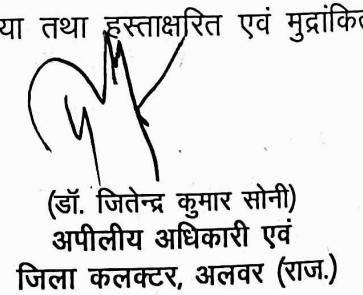 या तथा हस्ताक्षरित एवं मुद्रांकित
(डॉ. जितेन्द्र कुमार सोनी)
अपीलीय अधिकारी एवं
जिला कलक्टर, अलवर (राज.)